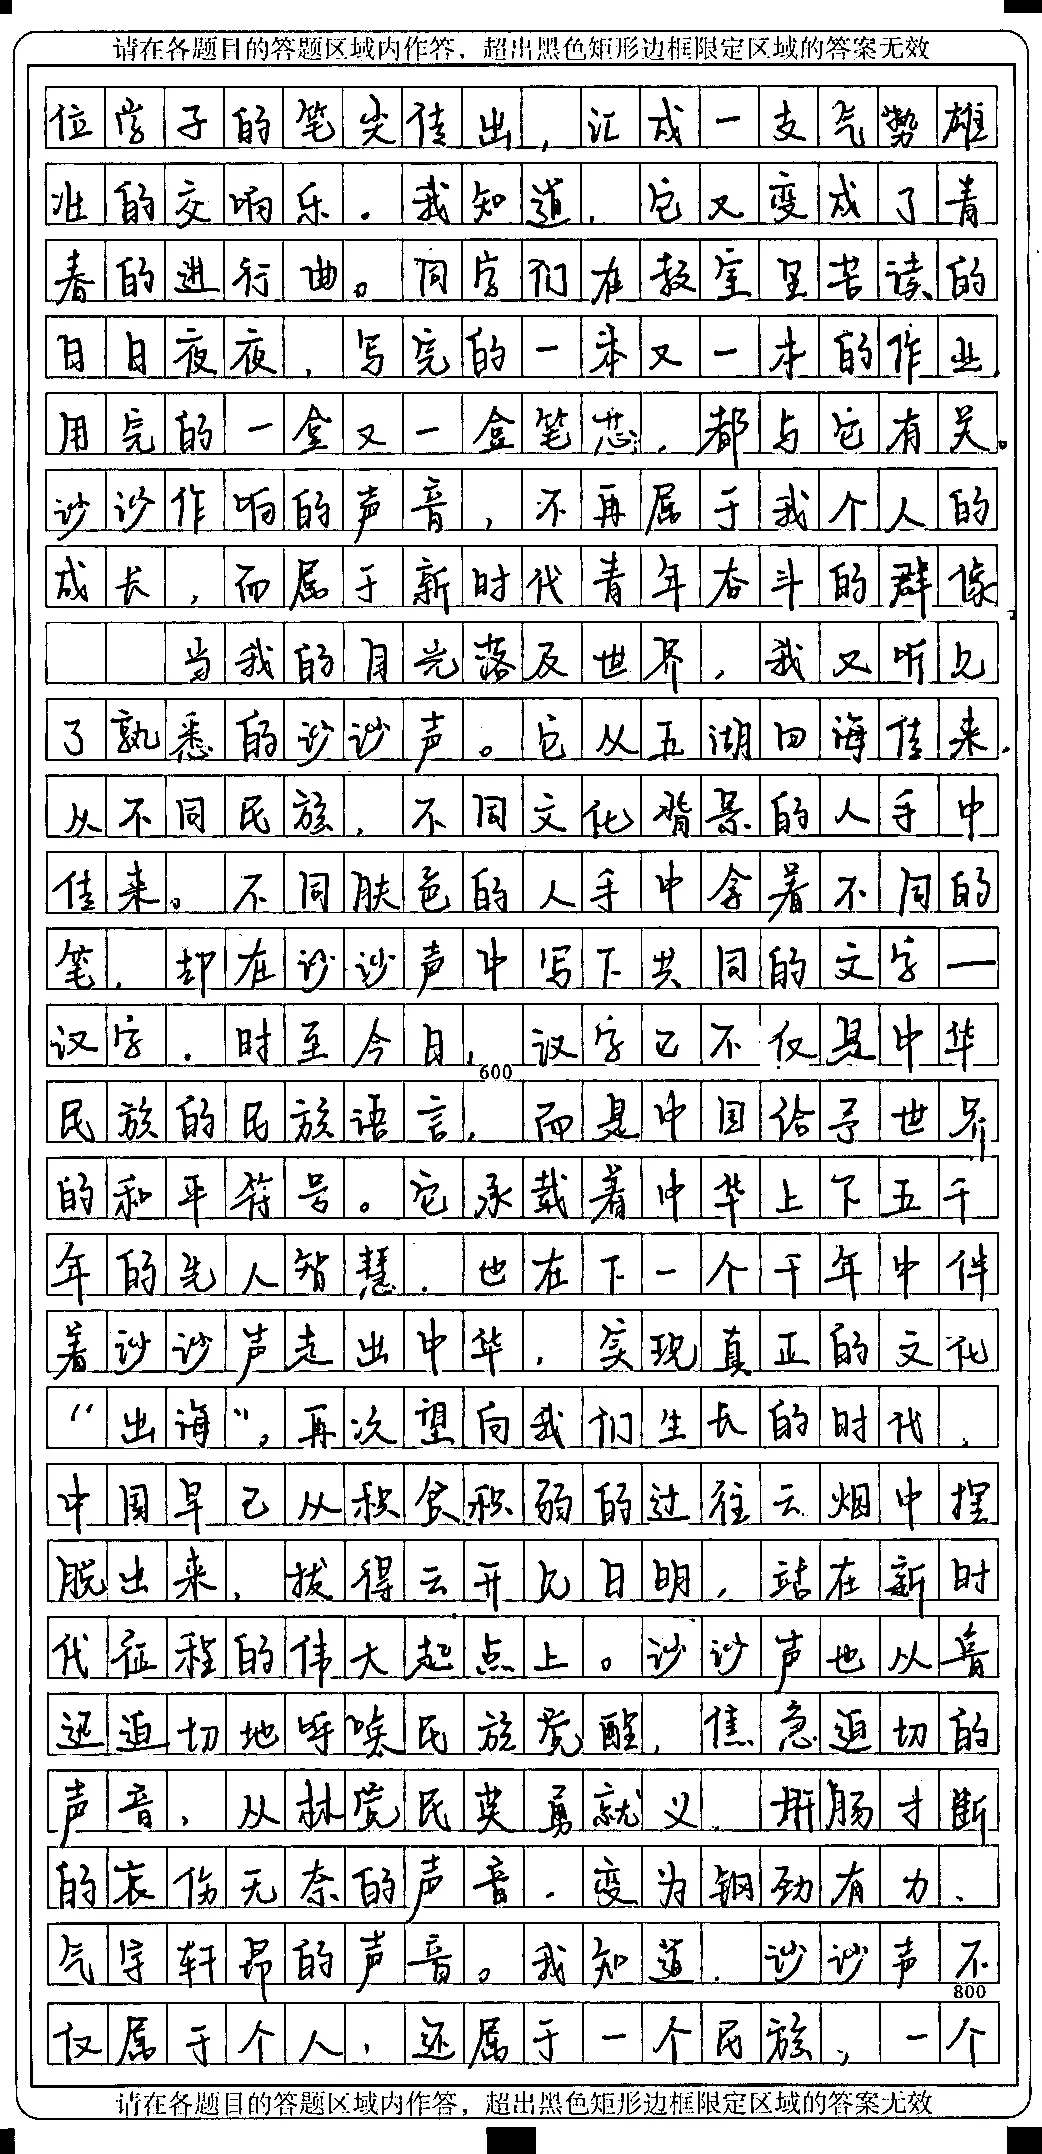 请在各题目的答题区域内作答，超出黑色矩形边框限定区域的答案无效
位学子的笔尖传出，汇成一支气势雄
壮的交响乐。我知道，它又变成了青
春的进行曲。同学们在教室里苦读的
日日夜夜，写完的一本又一本的作业，
用完的一盒又一盒笔芯，都与它有关。
沙沙作响的声音，不再属于我个人的
成长，而属于新时代青年奋斗的群像。
当我的目光落及世界，我又听见
了熟悉的沙沙声。它从五湖四海传来，
从不同民族，不同文化背景的人手中
传来。不同肤色的人手中拿着不同的
笔，却在沙沙声中写下共同的文字—
汉字。时至今日，汉字已不仅是中华
600
民族的民族语言，而是中国给予世界
的和平符号。它承载着中华上下五千
年的先人智慧，也在下一个千年中伴
着沙沙声走出中华，实现真正的文化
“出海”。再次望向我们生长的时代，
中国早已从积贫积弱的过往云烟中摆
脱出来，拨得云开见日明，站在新时
代征程的伟大起点上。沙沙声也从音
迟迫切地呼唤民族觉醒，焦急迫切的
声音，从林觉民英勇就义，肝肠寸断
的哀伤无奈的声音，变为钢劲有力、
气宇轩昂的声音。我知道，沙沙声不
800
仅属于个人，还属于一个民族，一个
请在各题目的答题区域内作答，超出黑色矩形边框限定区域的答案无效